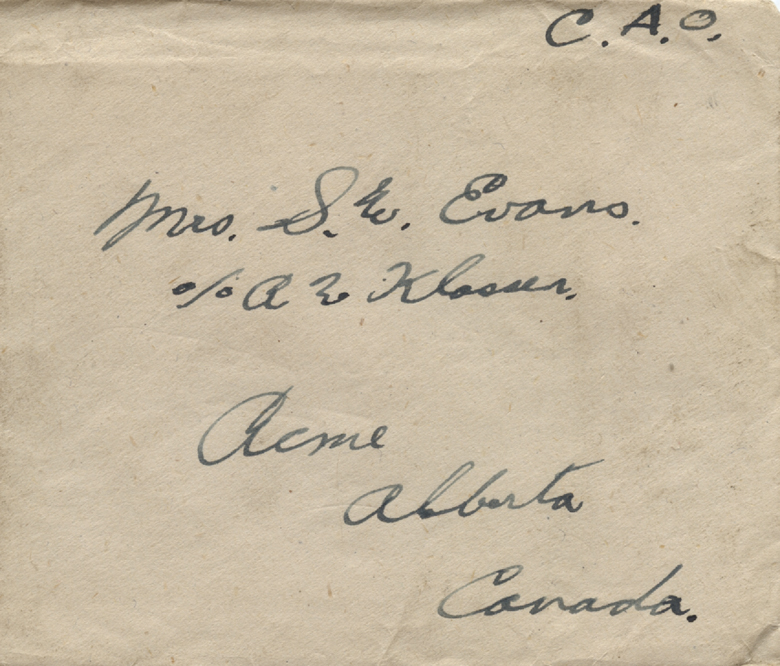 C.A.O.
Mrs. S. E. Evans.
%A E Klosser.
Acme
Alberta
Canada.